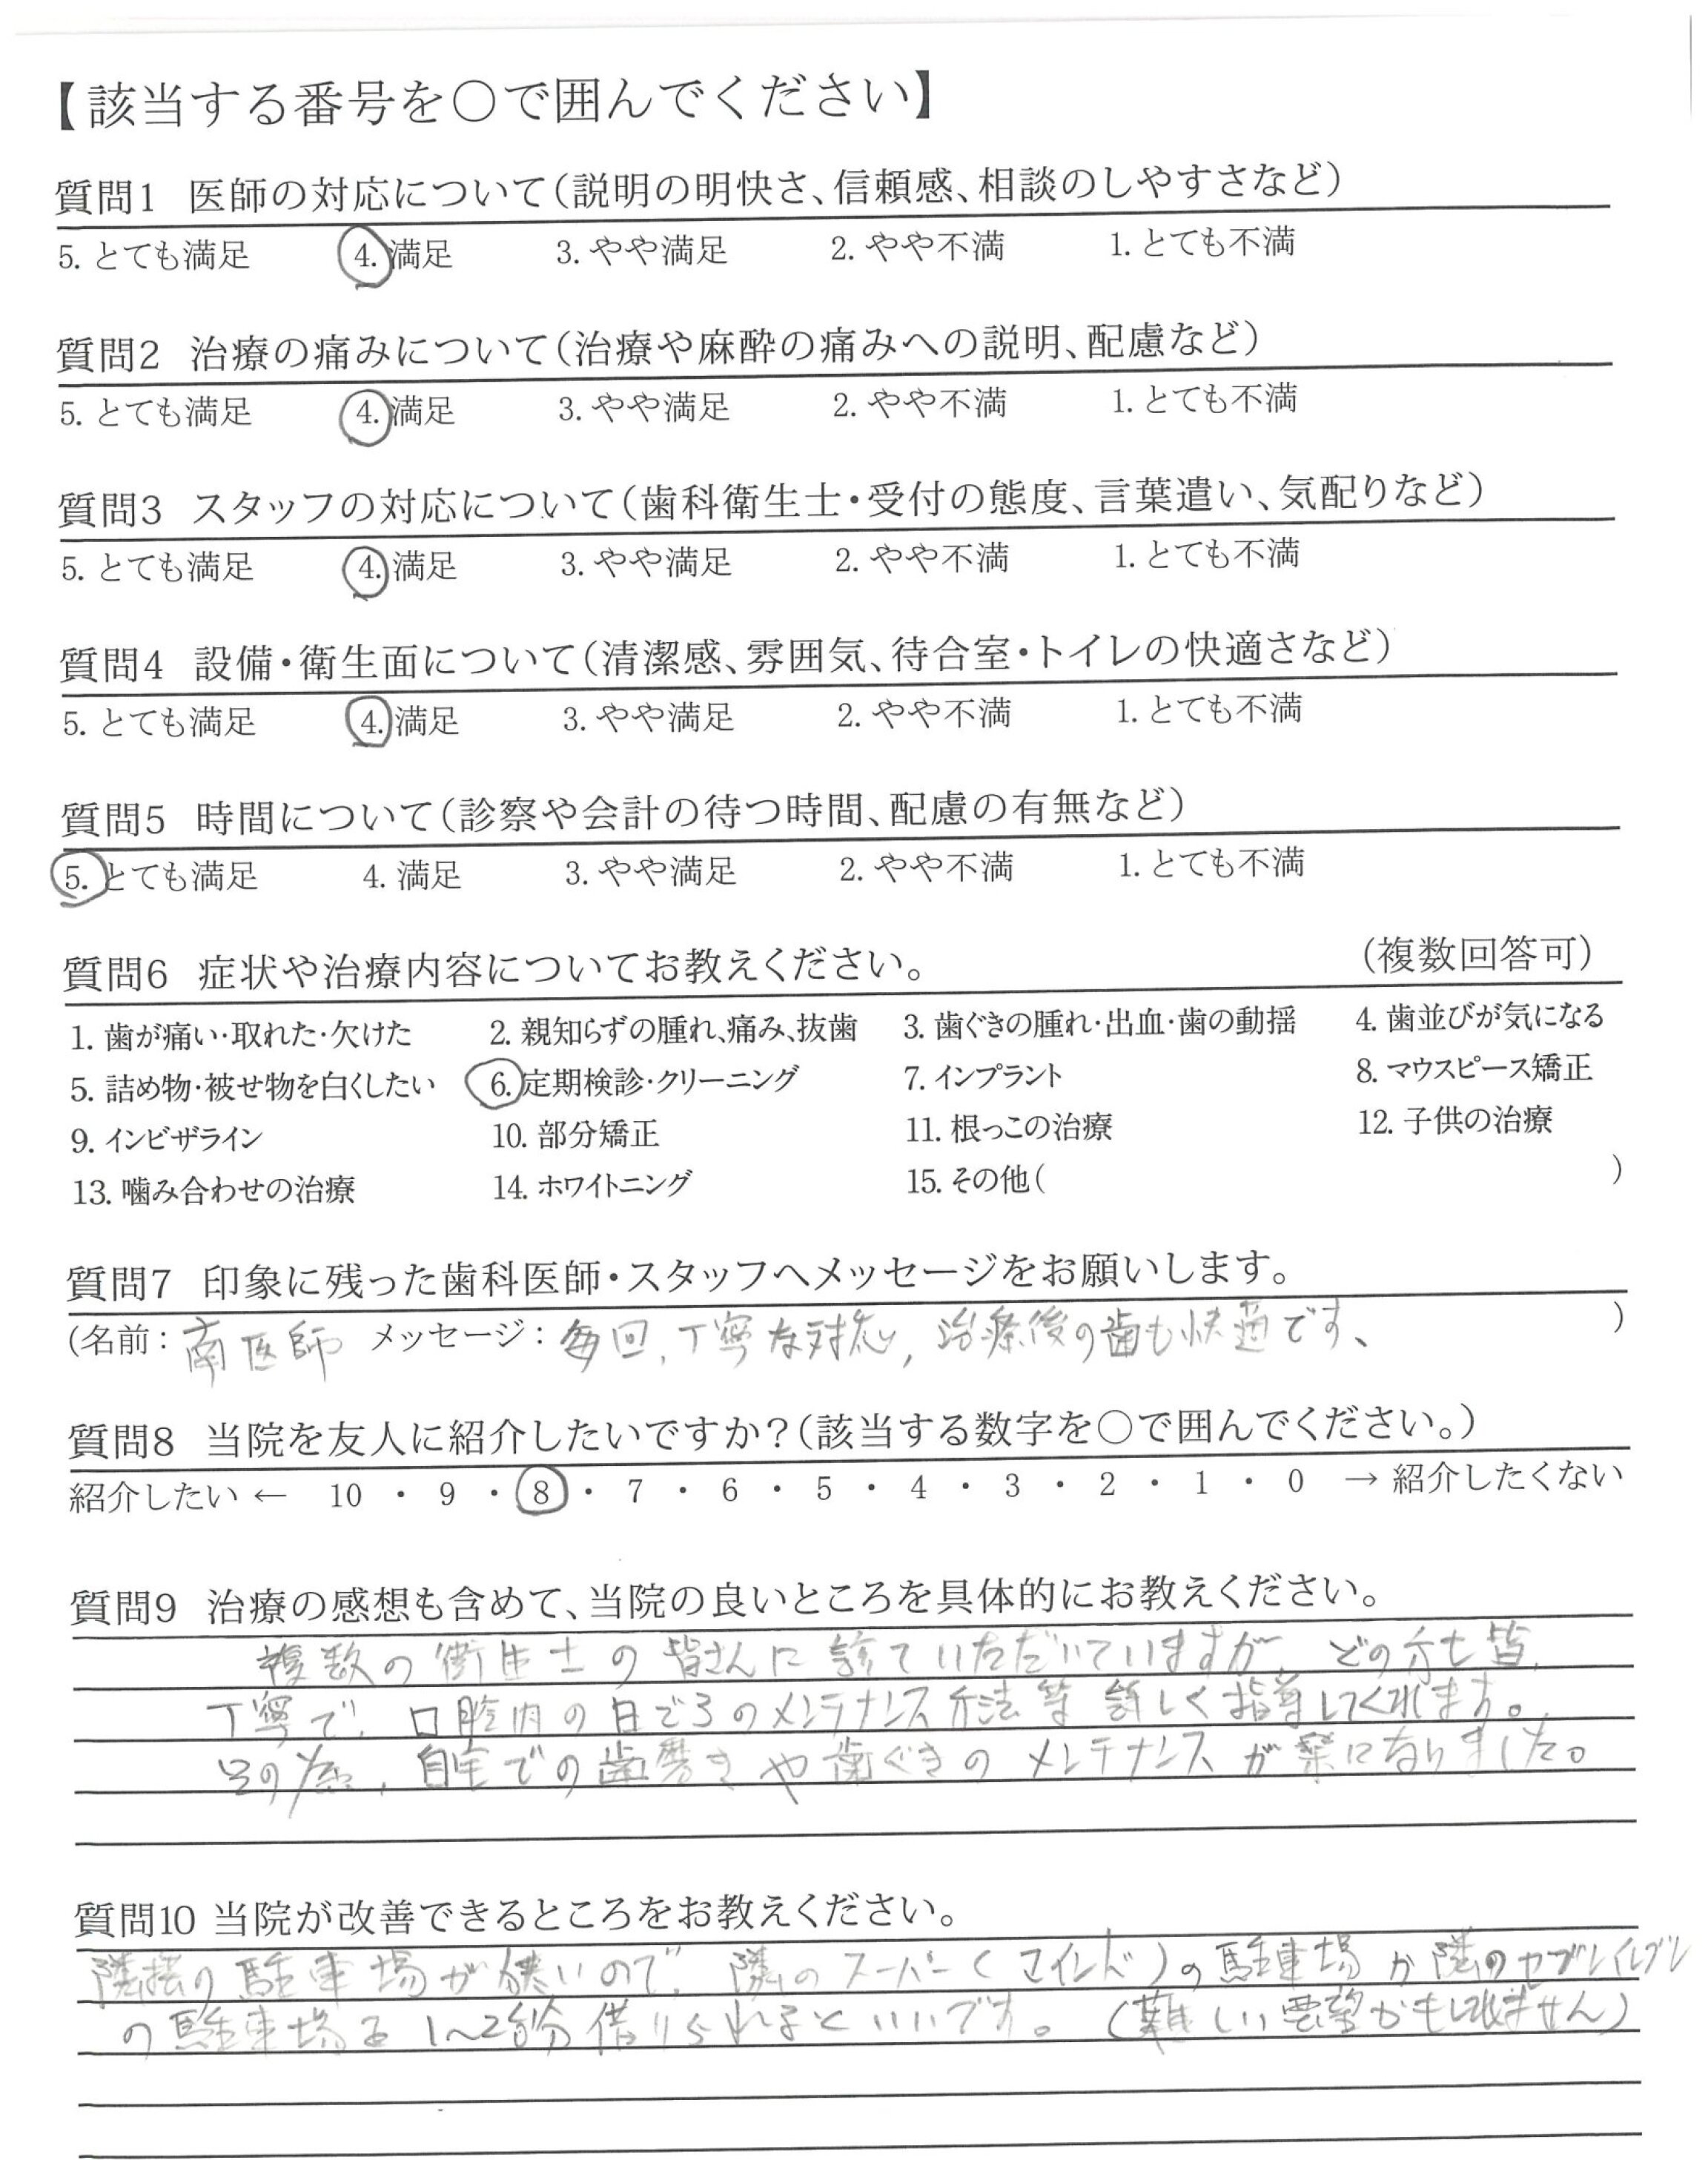 【該当する番号を〇で囲んでください】
質問1 医師の対応について(説明の明快さ、信頼感、相談のしやすさなど)
5. とても満足 4. 満足 3. やや満足 2. やや不満 1. とても不満
質問2 治療の痛みについて(治療や麻酔の痛みへの説明、配慮など)
5. とても満足 4. 満足 3. やや満足 2. やや不満 1. とても不満
質問3 スタッフの対応について(歯科衛生士・受付の態度、言葉遣い、気配りなど)
5. とても満足 4. 満足 3. やや満足 2. やや不満 1. とても不満
質問4 設備・衛生面について(清潔感、雰囲気、待合室・トイレの快適さなど)
5. とても満足 4. 満足 3. やや満足 2. やや不満 1. とても不満
質問5 時間について(診察や会計の待つ時間、配慮の有無など)
5. とても満足 4. 満足 3. やや満足 2. やや不満 1. とても不満
質問6 症状や治療内容についてお教えください。 (複数回答可)
1. 歯が痛い・取れた・欠けた 2. 親知らずの腫れ、痛み、抜歯 3. 歯ぐきの腫れ・出血・歯の動揺 4. 歯並びが気になる
5. 詰め物・被せ物を白くしたい 6. 定期検診・クリーニング 7. インプラント 8. マウスピース矯正
9. インビザライン 10. 部分矯正 11. 根っこの治療 12. 子供の治療
13. 噛み合わせの治療 14. ホワイトニング 15. その他( )
質問7 印象に残った歯科医師・スタッフへメッセージをお願いします。
(名前: 南医師 メッセージ: 毎回、丁寧な対応、治療後の歯も快適です、 )
質問8 当院を友人に紹介したいですか?(該当する数字を〇で囲んでください。)
紹介したい ← 10 ・ 9 ・ 8 ・ 7 ・ 6 ・ 5 ・ 4 ・ 3 ・ 2 ・ 1 ・ 0 → 紹介したくない
質問9 治療の感想も含めて、当院の良いところを具体的にお教えください。
複数の衛生士の皆さんに診ていただいていますが、どの方も皆、
丁寧で、口腔内の日ごろのメンテナンス方法等詳しく指導してくれます。
その為、自宅での歯磨きや歯ぐきのメンテナンスが楽になりました。
質問10 当院が改善できるところをお教えください。
隣接の駐車場が狭いので、隣のスーパー(マインド)の駐車場か隣のセブンイレブン
の駐車場を1~2台分借りられるといいです。(難しい要望かもしれません)